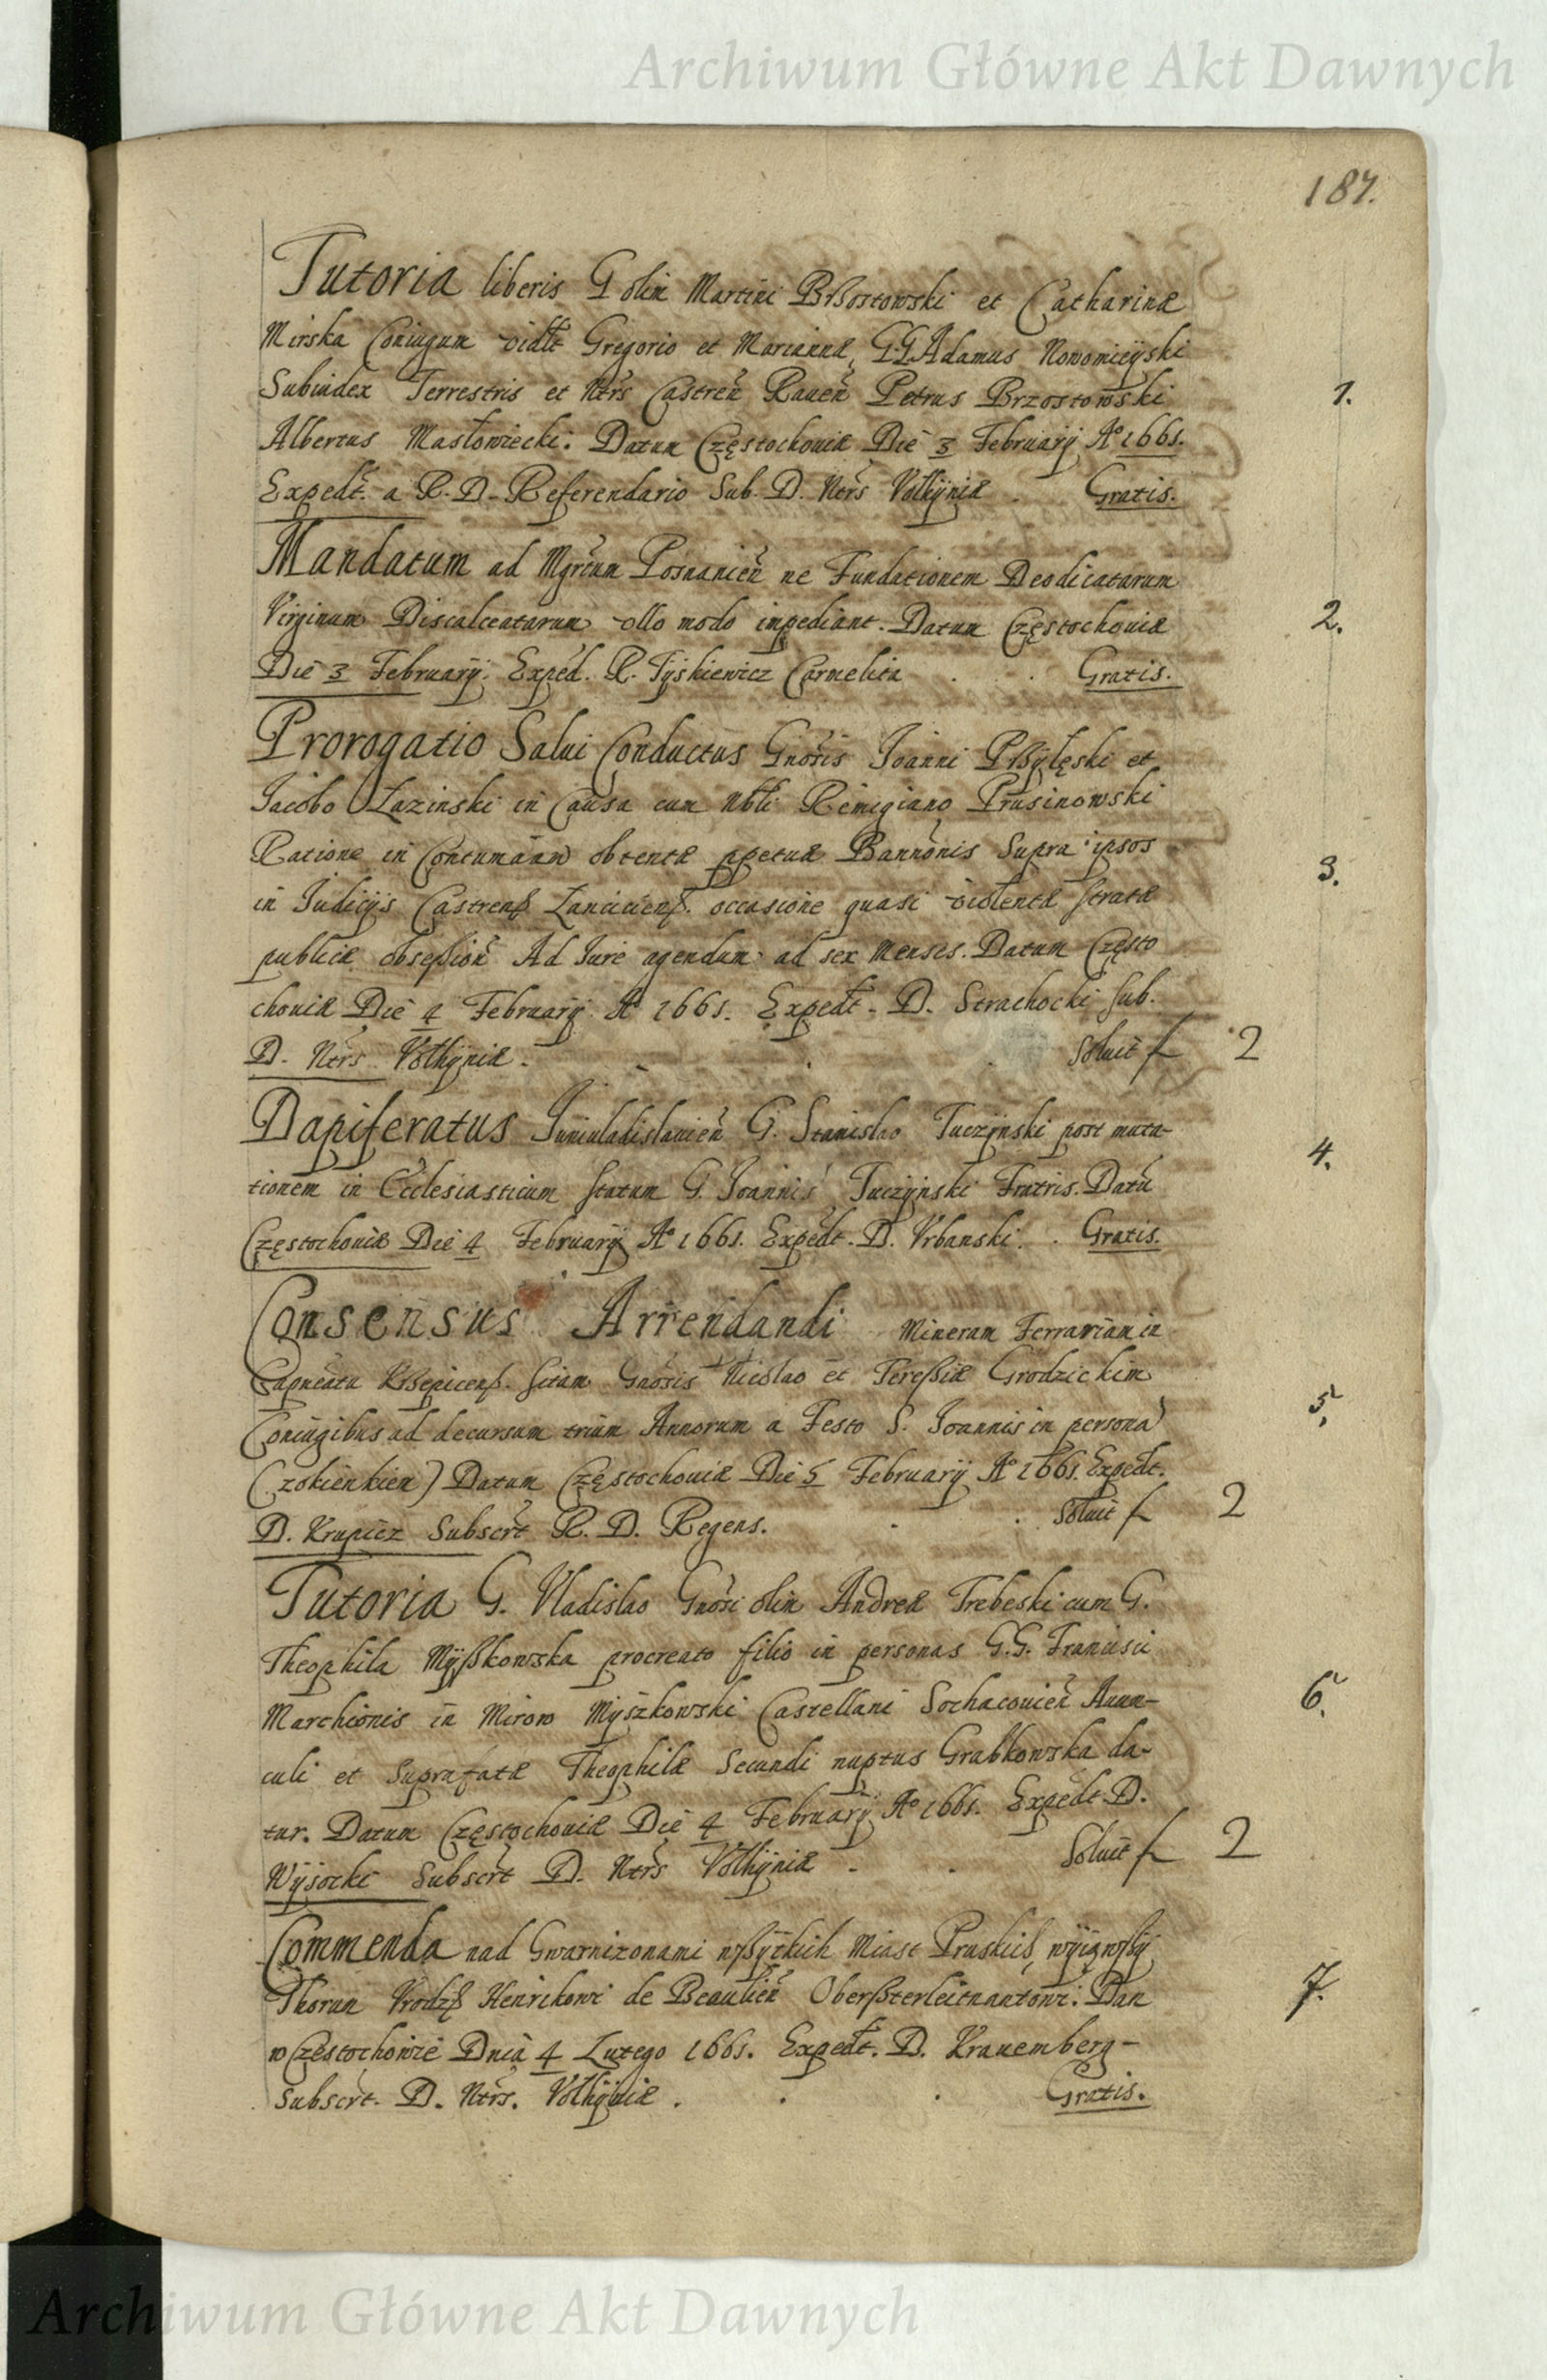 Archiwum Główne Akt Dawnych
187.
Tutoria liberis G olim Martini Brßostowski et Catharinæ
Mirska Coniugum vidlt Gregorio et Mariannæ, G.G. Adamus Nowomieÿski
Subiudex Terrestris et Ntrs Castren Rauen Petrus Brzostowski 1.
Albertus Masłowiecki. Datum Częstochouiæ Die 3 Februarÿ Aº 1661.
Expedt. a R. D. Referendario Sub. D. Ntrs Volhÿniæ . Gratis.
Mandatum ad Mgrtum Posnanien ne Fundationem Deodicatarum
Virginum Discalceatarum vllo modo impediant. Datum Częstochouiæ 2.
Die 3 Februarÿ. Exped. R. Tÿskiewicz Carmelita . . Gratis.
Prorogatio Salui Conductus Gnosis Joanni Prßÿlęski et
Jacobo Łazinski in Causa cum Nbli Remigiano Prusinowski
Ratione in Contumaam obtentæ ppetuæ Bannonis Supra ipsos 3.
in Iudicÿs Castrenß Lancicienß. occasione quasi violentæ stratæ
publicæ obseßion Ad Iure agendum ad sex Menses. Datum Często
chouiæ Die 4 Februarÿ Aº 1661. Expedt. D. Strachocki sub.
D. Ntrs Volhÿniæ . . . Soluit f 2
Dapiferatus Iuniuladislauien G. Stanislao Tuczÿnski post muta- 4.
tionem in Ecclesiasticum statum G. Joannis Tuczÿnski Fratris. Datu
Częstochouiæ Die 4 Februarÿ Aº 1661. Expedt. D. Vrbanski. . Gratis.
Consensus Arrendandi Mineram Ferrariam in
Capneatu Krßepicenß. sitam Gnosis Nicolao et Tereßiæ Grodzickim
Coniugibus ad decursum trium Annorum a Festo S. Joannis in persona 5.
(zokienkien) Datum Częstochouiæ Die 5 Februarÿ Aº 1661. Expedt.
D. Krupicz Subscrt R. D. Regens. . . Soluit f 2
Tutoria G. Vladislao Gnosi olim Andreæ Trebeski cum G.
Theophila Mÿßkowska procreato filio in personas G.G. Francisci
Marchionis in Mirow Mÿszkowski Castellani Sochacouien Auun- 6.
culi et Suprafatæ Theophilæ Secundi nuptus Grabkowska da-
tur. Datum Częstochouiæ Die 4 Februarÿ Aº 1661. Expedt D.
Wÿsocki Subscrt D. Ntrs Volhÿniæ . . Soluit f 2
Commenda nad Gwarnizonami wßÿtkich Miast Pruskich wÿiąwßÿ
Thorun Vrodzß Henrikowi de Beaulien Oberßterleitnantowi. Dan 7.
w Częstochowie Dnia 4 Lutego 1661. Expedt. D. Krauemberg-
Subscrt. D. Ntrs. Volhÿniæ . . . Gratis.
Archiwum Główne Akt Dawnych